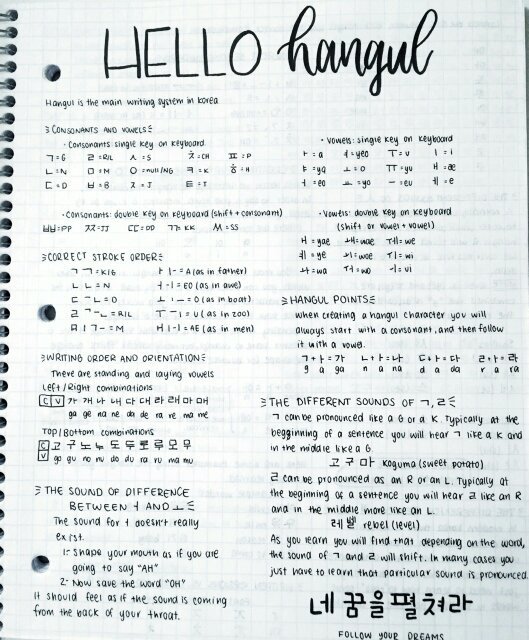 HELLO hangul
Hangul is the main writing system in Korea
CONSONANTS AND VOWELS
· Consonants: single key on keyboard
ㄱ=G ㄹ=R/L ㅅ=S ㅊ=CH ㅍ=P
ㄴ=N ㅁ=M ㅇ=null/NG ㅋ=K ㅎ=H
ㄷ=D ㅂ=B ㅈ=J ㅌ=T
· Consonants: double key on keyboard (shift + consonant)
ㅃ=PP ㅉ=JJ ㄸ=DD ㄲ=KK ㅆ=SS
· Vowels: single key on keyboard
ㅏ=a ㅕ=yeo ㅜ=u ㅣ=i
ㅑ=ya ㅗ=o ㅠ=yu ㅐ=æ
ㅓ=eo ㅛ=yo ㅡ=eu ㅔ=e
· Vowels: double key on keyboard
(shift or vowel + vowel)
ㅒ=yae ㅙ=wae ㅞ=we
ㅖ=ye ㅚ=oe ㅟ=wi
ㅘ=wa ㅝ=wo ㅢ=vi
CORRECT STROKE ORDER:
ㄱ ㄱ=K/G ㅏ ㅣ-=A (as in father)
ㄴ ㄴ=N ㅓ -ㅣ=EO (as in awe)
ㄷ -ㄴ=D ㅗ ㅣ-=O (as in boat)
ㄹ ㄱ-ㄴ=R/L ㅜ -ㅣ=U (as in zoo)
ㅁ ㅣㄱ-=M ㅐ ㅣ-ㅣ=AE (as in men)
WRITING ORDER AND ORIENTATION
There are standing and laying vowels
Left/Right combinations
C V 가 개 나 내 다 대 라 래 마 매
ga gae na nae da de ra re ma mé
Top/Bottom combinations
C 고 구 노 누 도 두 로 루 모 무
V go gu no nu do du ra ru ma mu
THE SOUND OF DIFFERENCE
BETWEEN ㅓ AND ㅗ
The sound for ㅓ doesn't really
exist.
1: Shape your mouth as if you are
going to say "AH"
2: Now save the word "OH"
It should feel as if the sound is coming
from the back of your throat.
HANGUL POINTS
When creating a hangul character you will
always start with a consonant, and then follow
it with a vowel.
ㄱ+ㅏ=가 ㄴ+ㅏ=나 ㄷ+ㅏ=다 ㄹ+ㅏ=라
g a ga n a na d a da r a ra
THE DIFFERENT SOUNDS OF ㄱ,ㄹ
ㄱ can be pronounced like a G or a K. Typically at
the begginning of a sentence you will hear ㄱ like a K and
in the middle like a G.
고구마 koguma (sweet potato)
ㄹ can be pronounced as an R or an L. Typically at
the beginning as a sentence you will hear ㄹ like an R
and in the middle more like an L.
레벨 rebel (level)
As you learn you will find that depending on the word,
the sound of ㄱ and ㄹ will shift. In many cases you
just have to learn that particular sound is pronounced
네 꿈을 펼쳐라
FOLLOW YOUR DREAMS